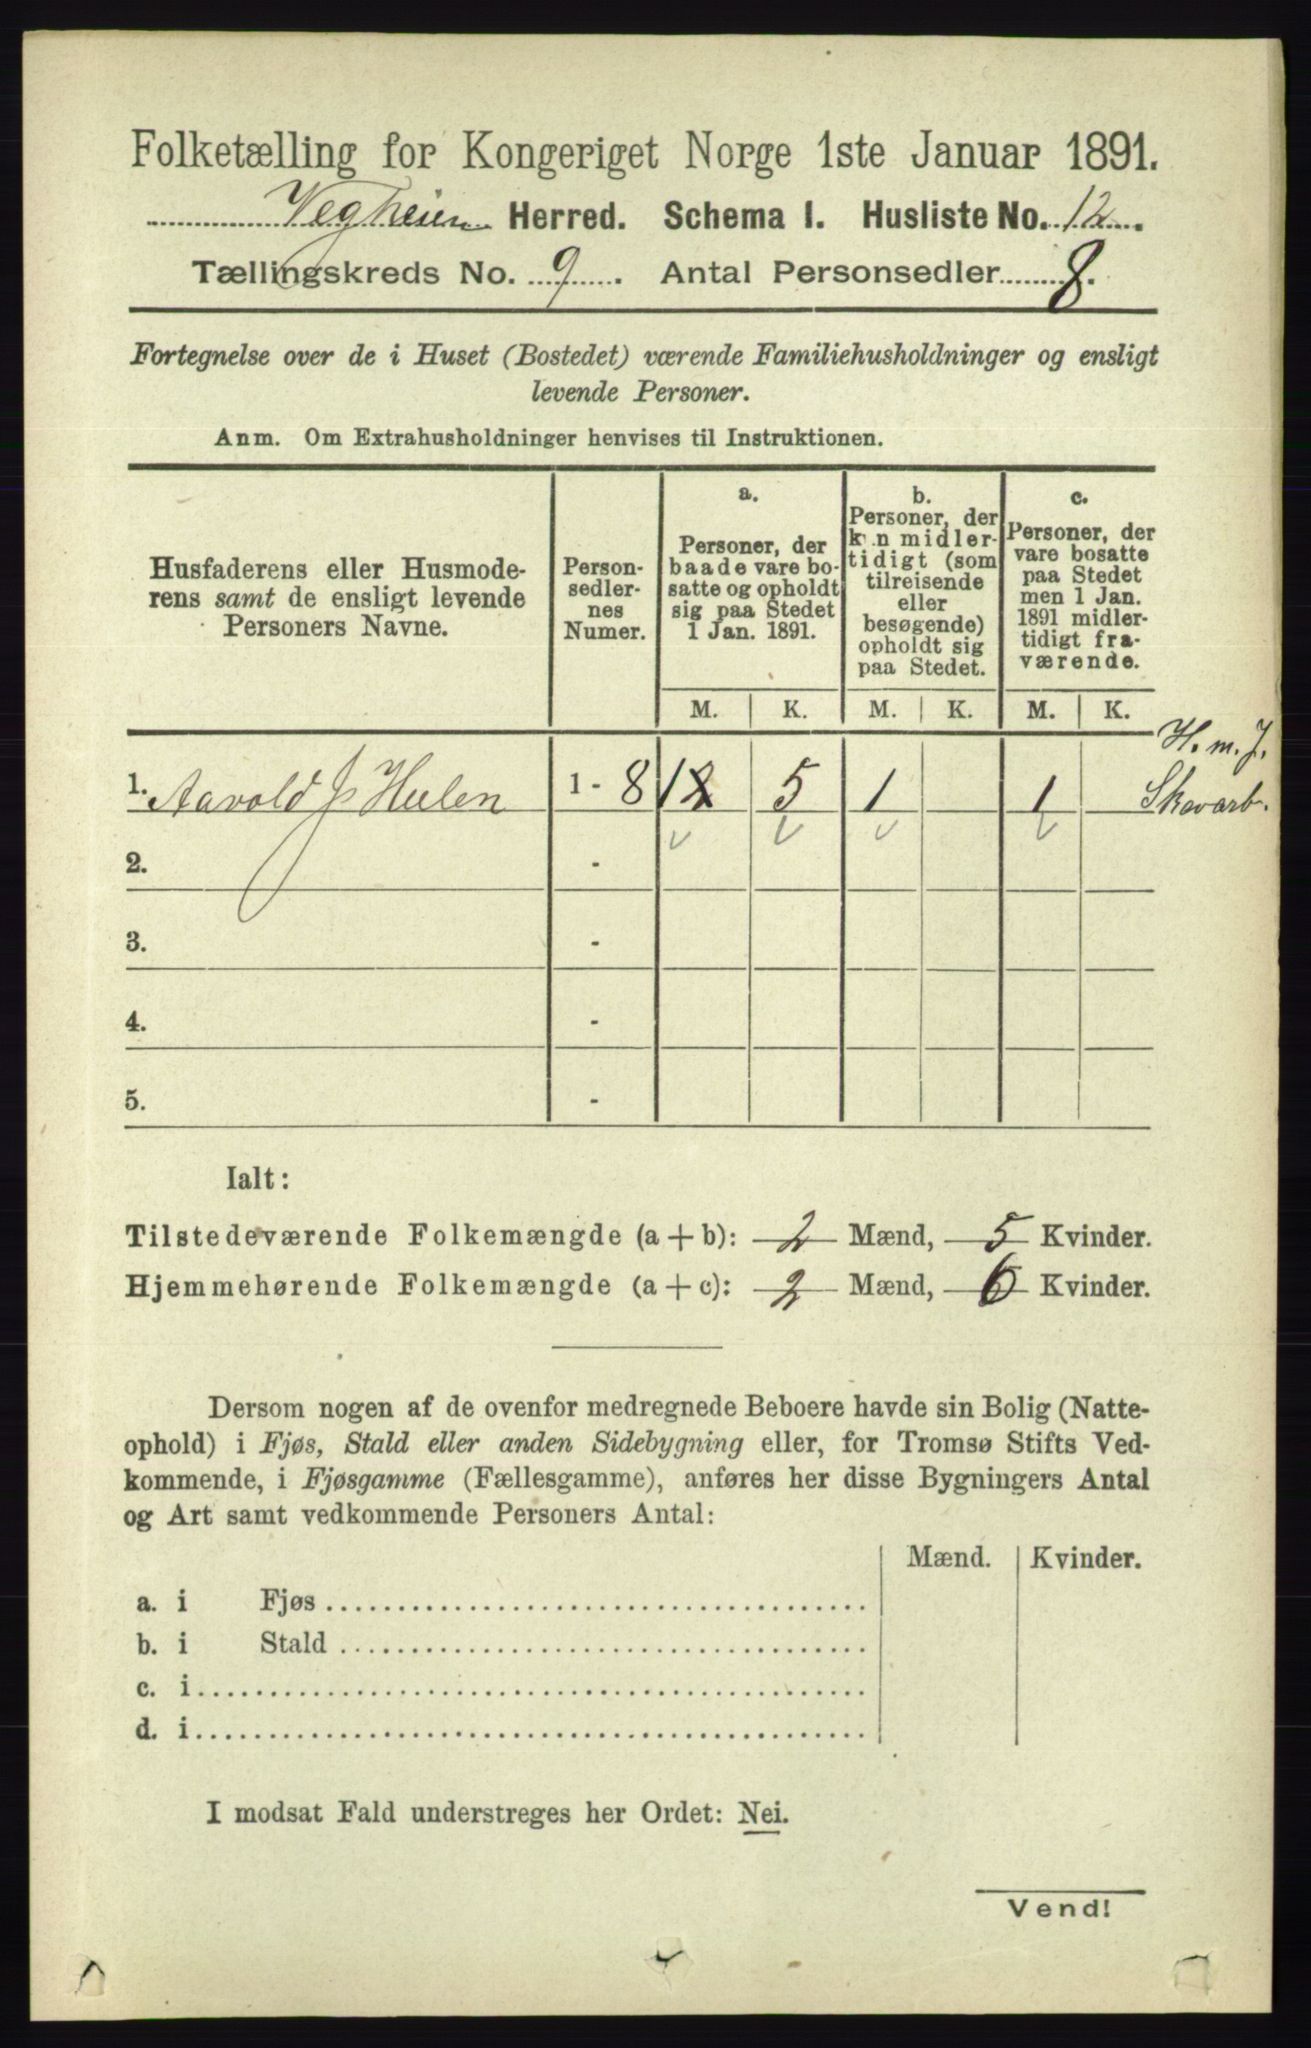 Folketælling for Kongeriget Norge 1ste Januar 1891.
Vegheien Herred. Schema I. Husliste No. 12.
Tællingskreds No. 9. Antal Personsedler 8.
Fortegnelse over de i Huset (Bostedet) værende Familiehusholdninger og ensligt
levende Personer.
Anm. Om Extrahusholdninger henvises til Instruktionen.
Husfaderens eller Husmode-
rens samt de ensligt levende
Personers Navne.
Person-
sedler-
nes
Numer.
a.
Personer, der
baade vare bo-
satte og opholdt
sig paa Stedet
1 Jan. 1891.
b.
Personer, der
kun midler-
tidigt (som
tilreisende
eller
besøgende)
opholdt sig
paa Stedet.
c.
Personer, der
vare bosatte
paa Stedet
men 1 Jan.
1891 midler-
tidigt fra-
værende.
M. K. M. K. M. K.
H. m. J.
1. Aavold Js Hulen 1 - 8 1 2 5 1 1 Skovarb.
2. -
3. -
4. -
5. -
Ialt:
Tilstedeværende Folkemængde (a + b): 2 Mænd, 5 Kvinder.
Hjemmehørende Folkemængde (a + c): 2 Mænd, 6 Kvinder.
Dersom nogen af de ovenfor medregnede Beboere havde sin Bolig (Natte-
ophold) i Fjøs, Stald eller anden Sidebygning eller, for Tromsø Stifts Ved-
kommende, i Fjøsgamme (Fællesgamme), anføres her disse Bygningers Antal
og Art samt vedkommende Personers Antal:
Mænd. Kvinder.
a. i Fjøs
b. i Stald
c. i
d. i
I modsat Fald understreges her Ordet: Nei.
Vend!